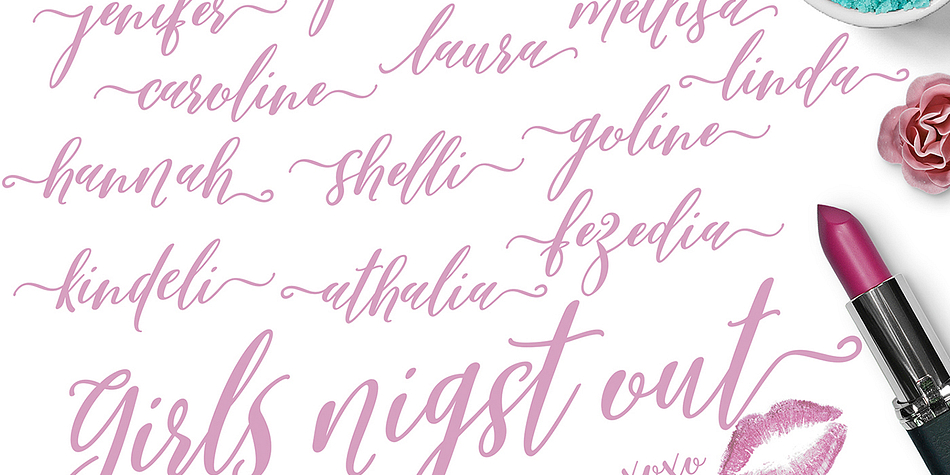 jenifer mellisa
laura
caroline linda
goline
hannah shelli
fezedia
kindeli athalia
Girls nigst out
xoxo